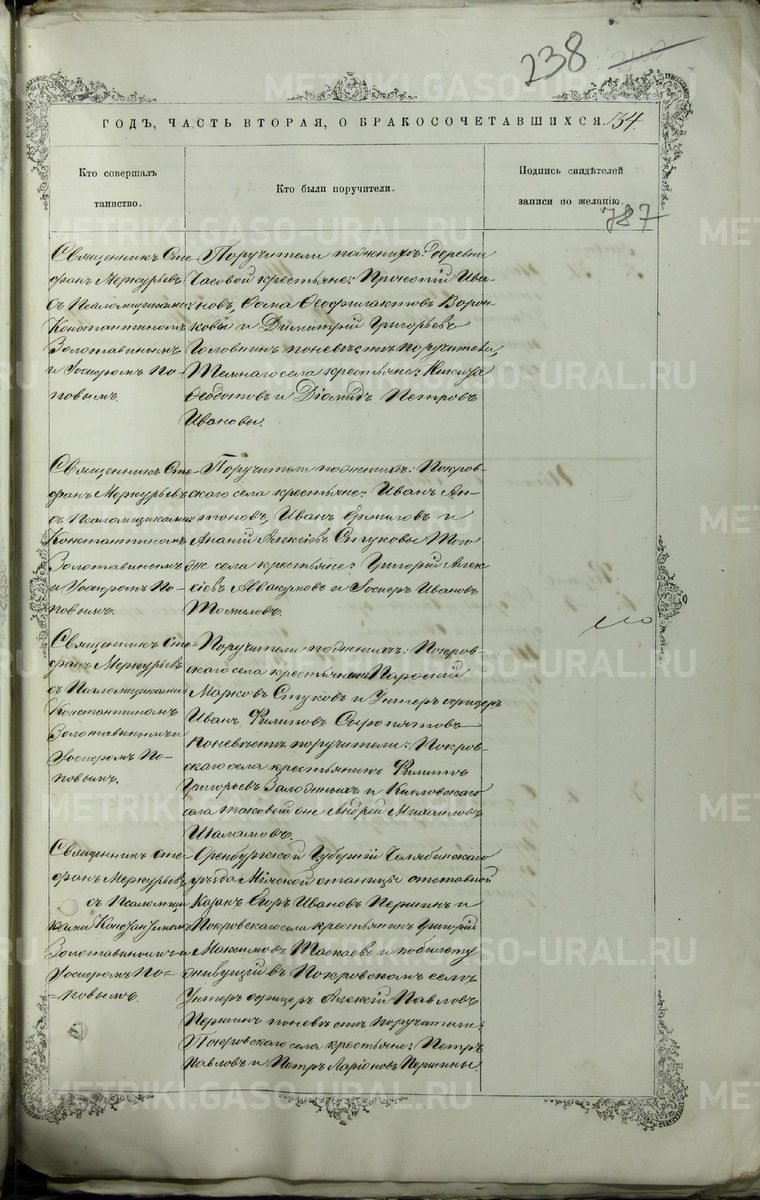 238
ГОДЪ, ЧАСТЬ ВТОРАЯ, О БРАКОСОЧЕТАВШИХСЯ. 134.
Кто совершалъ
таинство.
Кто были поручители.
Подпись свидѣтелей
записи по желанію.
787
Священникъ Сте-
фанъ Меркурьевъ
съ Псаломщиками
Константиномъ
Золотавинымъ
и Іосифомъ По-
повымъ.
Поручители по женихѣ: деревни
Часовой крестьяне: Прокопій Ива-
новъ, Ѳома Ѳеофилактовъ Ворон-
ковы и Димитрій Григорьевъ
Головинъ по невѣстѣ поручители,
Темнаго села крестьяне: Никита
Ѳедотовъ и Діомидъ Петровъ
Ивановы.
Священникъ Сте-
фанъ Меркурьевъ
съ Псаломщиками
Константиномъ
Золотавинымъ
и Іосифомъ По-
повымъ.
Поручители по женихѣ: Покров-
скаго села крестьяне: Иванъ Ан-
тоновъ, Иванъ Ермиловъ и
Ананій Алексіевъ Стуковы Того
же села крестьяне: Григорій Алек-
сіевъ Аввакумовъ и Іосифъ Ивановъ
Томиловъ.
Священникъ Сте-
фанъ Меркурьевъ
съ Псаломщиками
Константиномъ
Золотавинымъ и
Іосифомъ По-
повымъ.
Поручители по женихѣ: Покров-
скаго села крестьяне
Марковъ Стуковъ и Унтеръ офицеръ
Иванъ Филиповъ Сыропятовъ
По невѣстѣ поручители: Покров-
скаго села крестьянинъ Филиппъ
Григорьевъ Залодиныхъ и Кисловскаго
села таковой же Андрей Михаиловъ
Шаламовъ.
Священникъ Сте-
фанъ Меркурьевъ
съ Псаломщи-
ками Константиномъ
Золотавинымъ и
Іосифомъ По-
повымъ.
Оренбургской Губерніи Челябинскаго
уѣзда Міясской станицы отставной
Казакъ Егоръ Ивановъ Першинъ и
Покровскаго села крестьянинъ Григорій
Максимовъ Таскаевъ и по билету
живущій въ Покровскомъ селѣ
Унтеръ офицеръ Алексій Павловъ
Першинъ по невѣстѣ поручители:
Покровскаго села крестьяне: Петръ
Павловъ и Петръ Ларіоновъ Першины.
METRIKI.GASO-URAL.RU